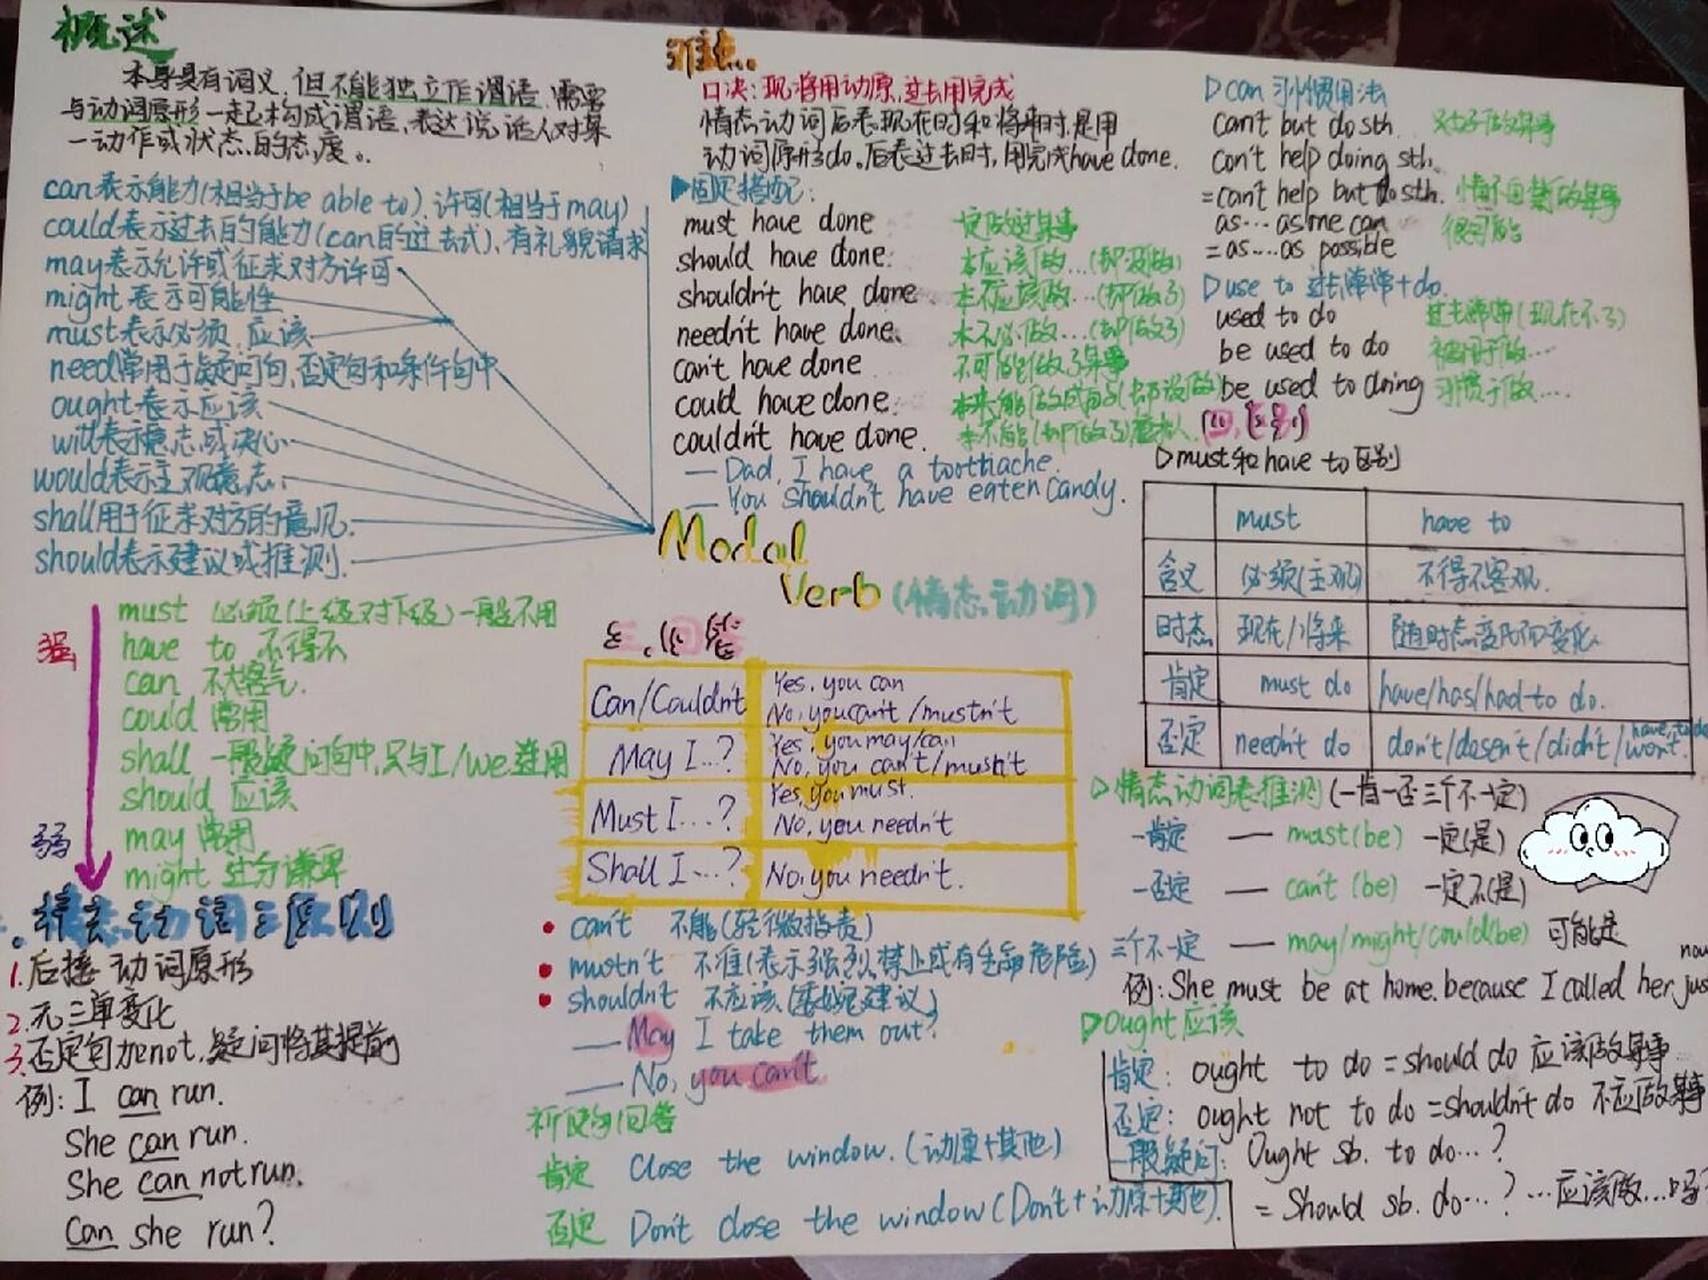 概述
本身具有词义,但不能独立作谓语,需要
与动词原形一起构成谓语,表达说话人对某
一动作或状态的态度。
can表示能力(相当于be able to).许可(相当于may)
could表示过去的能力(can的过去式)、有礼貌请求
may表示允许或征求对方许可
might表示可能性
must表示必须,应该
need常用于疑问句,否定句和条件句中
ought表示应该
will表示意志或决心
would表示主观意志
shall用于征求对方的意见.
should表示建议或推测.
强
弱
must 必须(上级对下级)一般不用
have to 不得不
can 不太客气.
could 常用
shall 一般疑问句中,只与I/we连用
should 应该
may 常用
might 过分谦卑
情态动词三原则
1.后接动词原形
2.无三单变化
3.否定句加not,疑问将其提前
例:I can run.
She can run.
She can not run.
Can she run?
难点.
口决:现将用动原,过去用完成
情态动词后表现在时和将来时,是用
动词原形do。后表过去时,用完成have done.
固定搭配:
must have done 一定做过某事
should have done. 本应该做…(却没做)
shouldn't have done. 本不应该做…(却做了)
needn't have done. 本不必做…(却做了)
can't have done 不可能做了某事
could have done. 本来能做成某事(却没做)
couldn't have done. 本不能(却做了)
— Dad, I have a toothache.
— You shouldn't have eaten candy.
Modal
Verb (情态动词)
三.问答
Can/Couldn't Yes, you can
No, you can't /mustn't
May I...? Yes, you may/can
No, you can't/mustn't
Must I...? Yes, you must.
No, you needn't
Shall I...? No, you needn't.
can't 不能(轻微指责)
mustn't 不准(表示强烈禁止或有生命危险)
shouldn't 不应该(委婉建议)
— May I take them out?
— No, you can't
祈使句回答
肯定 Close the window.(动原+其他)
否定 Don't close the window(Don't+动原+其他).
can 习惯用法
can't but do sth.
can't help doing sth.
=can't help but do sth. 情不自禁做某事
as...as one can 很可能
=as...as possible
use to 过去常常+do.
used to do 过去常常(现在不了)
be used to do 被用于做…
be used to doing 习惯于做….
四,区别
must和have to区别
must have to
含义 必须(主观) 不得不客观.
时态 现在/将来 随时态变化而变化
肯定 must do have/has/had to do.
否定 needn't do don't/doesn't/didn't/won't have to do
情态动词表推测(一肯一否三个不一定)
一肯定 — must(be) 一定(是)
一否定 — can't (be) 一定不(是)
三个不一定 — may/might/could(be) 可能是
例:She must be at home.because I called her just now
Ought应该
肯定:ought to do =should do 应该做某事
否定:ought not to do =shouldn't do 不应做某事
一般疑问:Ought sb. to do...?
= Should sb. do...? …应该做…吗?